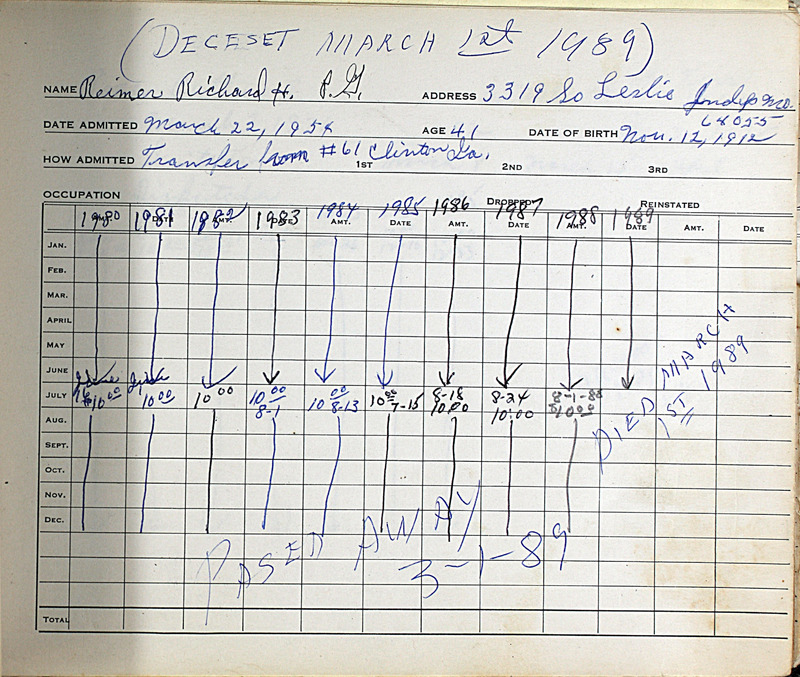 (DECESET MARCH 1st 1989)
NAME Reimer Richard H. P.G. ADDRESS 3319 So Leslie Indep Mo.
64055
DATE ADMITTED March 22, 1954 AGE 41 DATE OF BIRTH Nov. 12, 1912
HOW ADMITTED Transfer from #61 Clinton Ia. 1ST 2ND 3RD
OCCUPATION DROPPED REINSTATED
1980 1981 1982 1983 1984 1985 1986 1987 1988 1989
DATE AMT. DATE AMT. DATE AMT. DATE AMT. DATE
JAN.
FEB.
MAR.
APRIL
MAY
JUNE
JULY 10.00 10.00 10.00 10.00 10.00 10.00 8-18 8-24 8-1-88
8-1 8-13 7-15 10.00 10:00 $10.00
AUG.
SEPT.
OCT.
NOV.
DEC.
DIED MARCH
1ST 1989
PASED AWAY
3-1-89
TOTAL